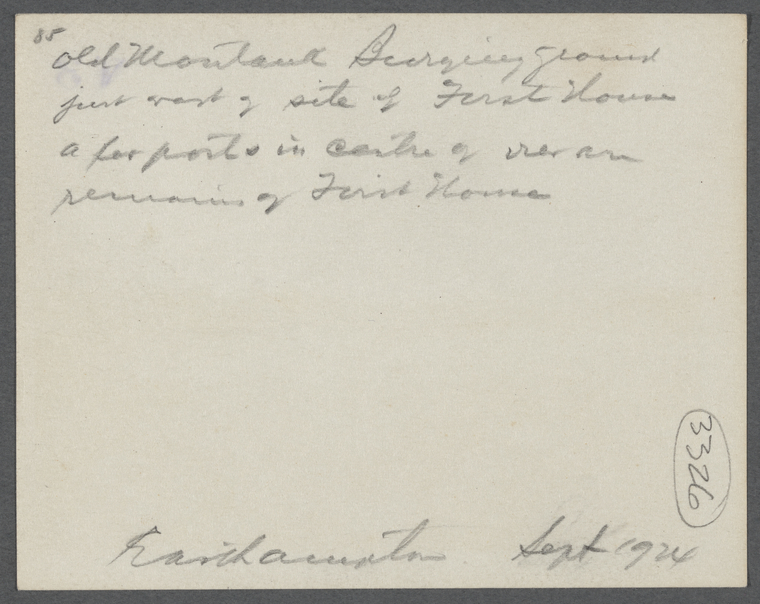 85
Old Montauk Burying ground
just west of site of First House
a few posts in centre of view are
remains of First House
3326
Easthampton Sept 1924